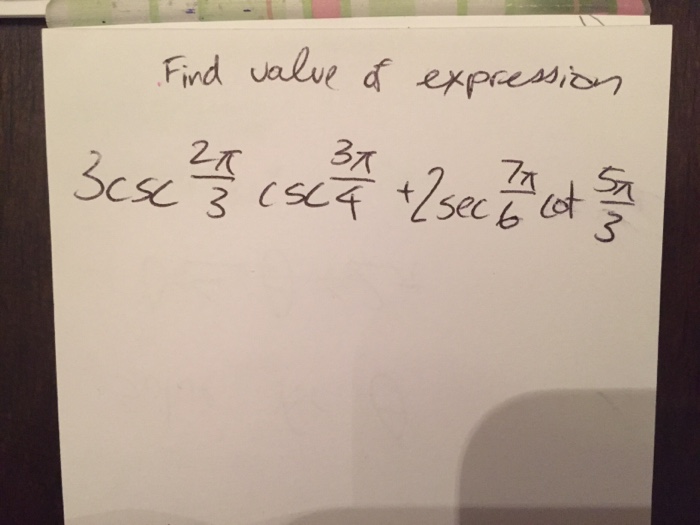 Find value of expression
3csc 2π/3 csc 3π/4 + 2sec 7π/6 cot 5π/3